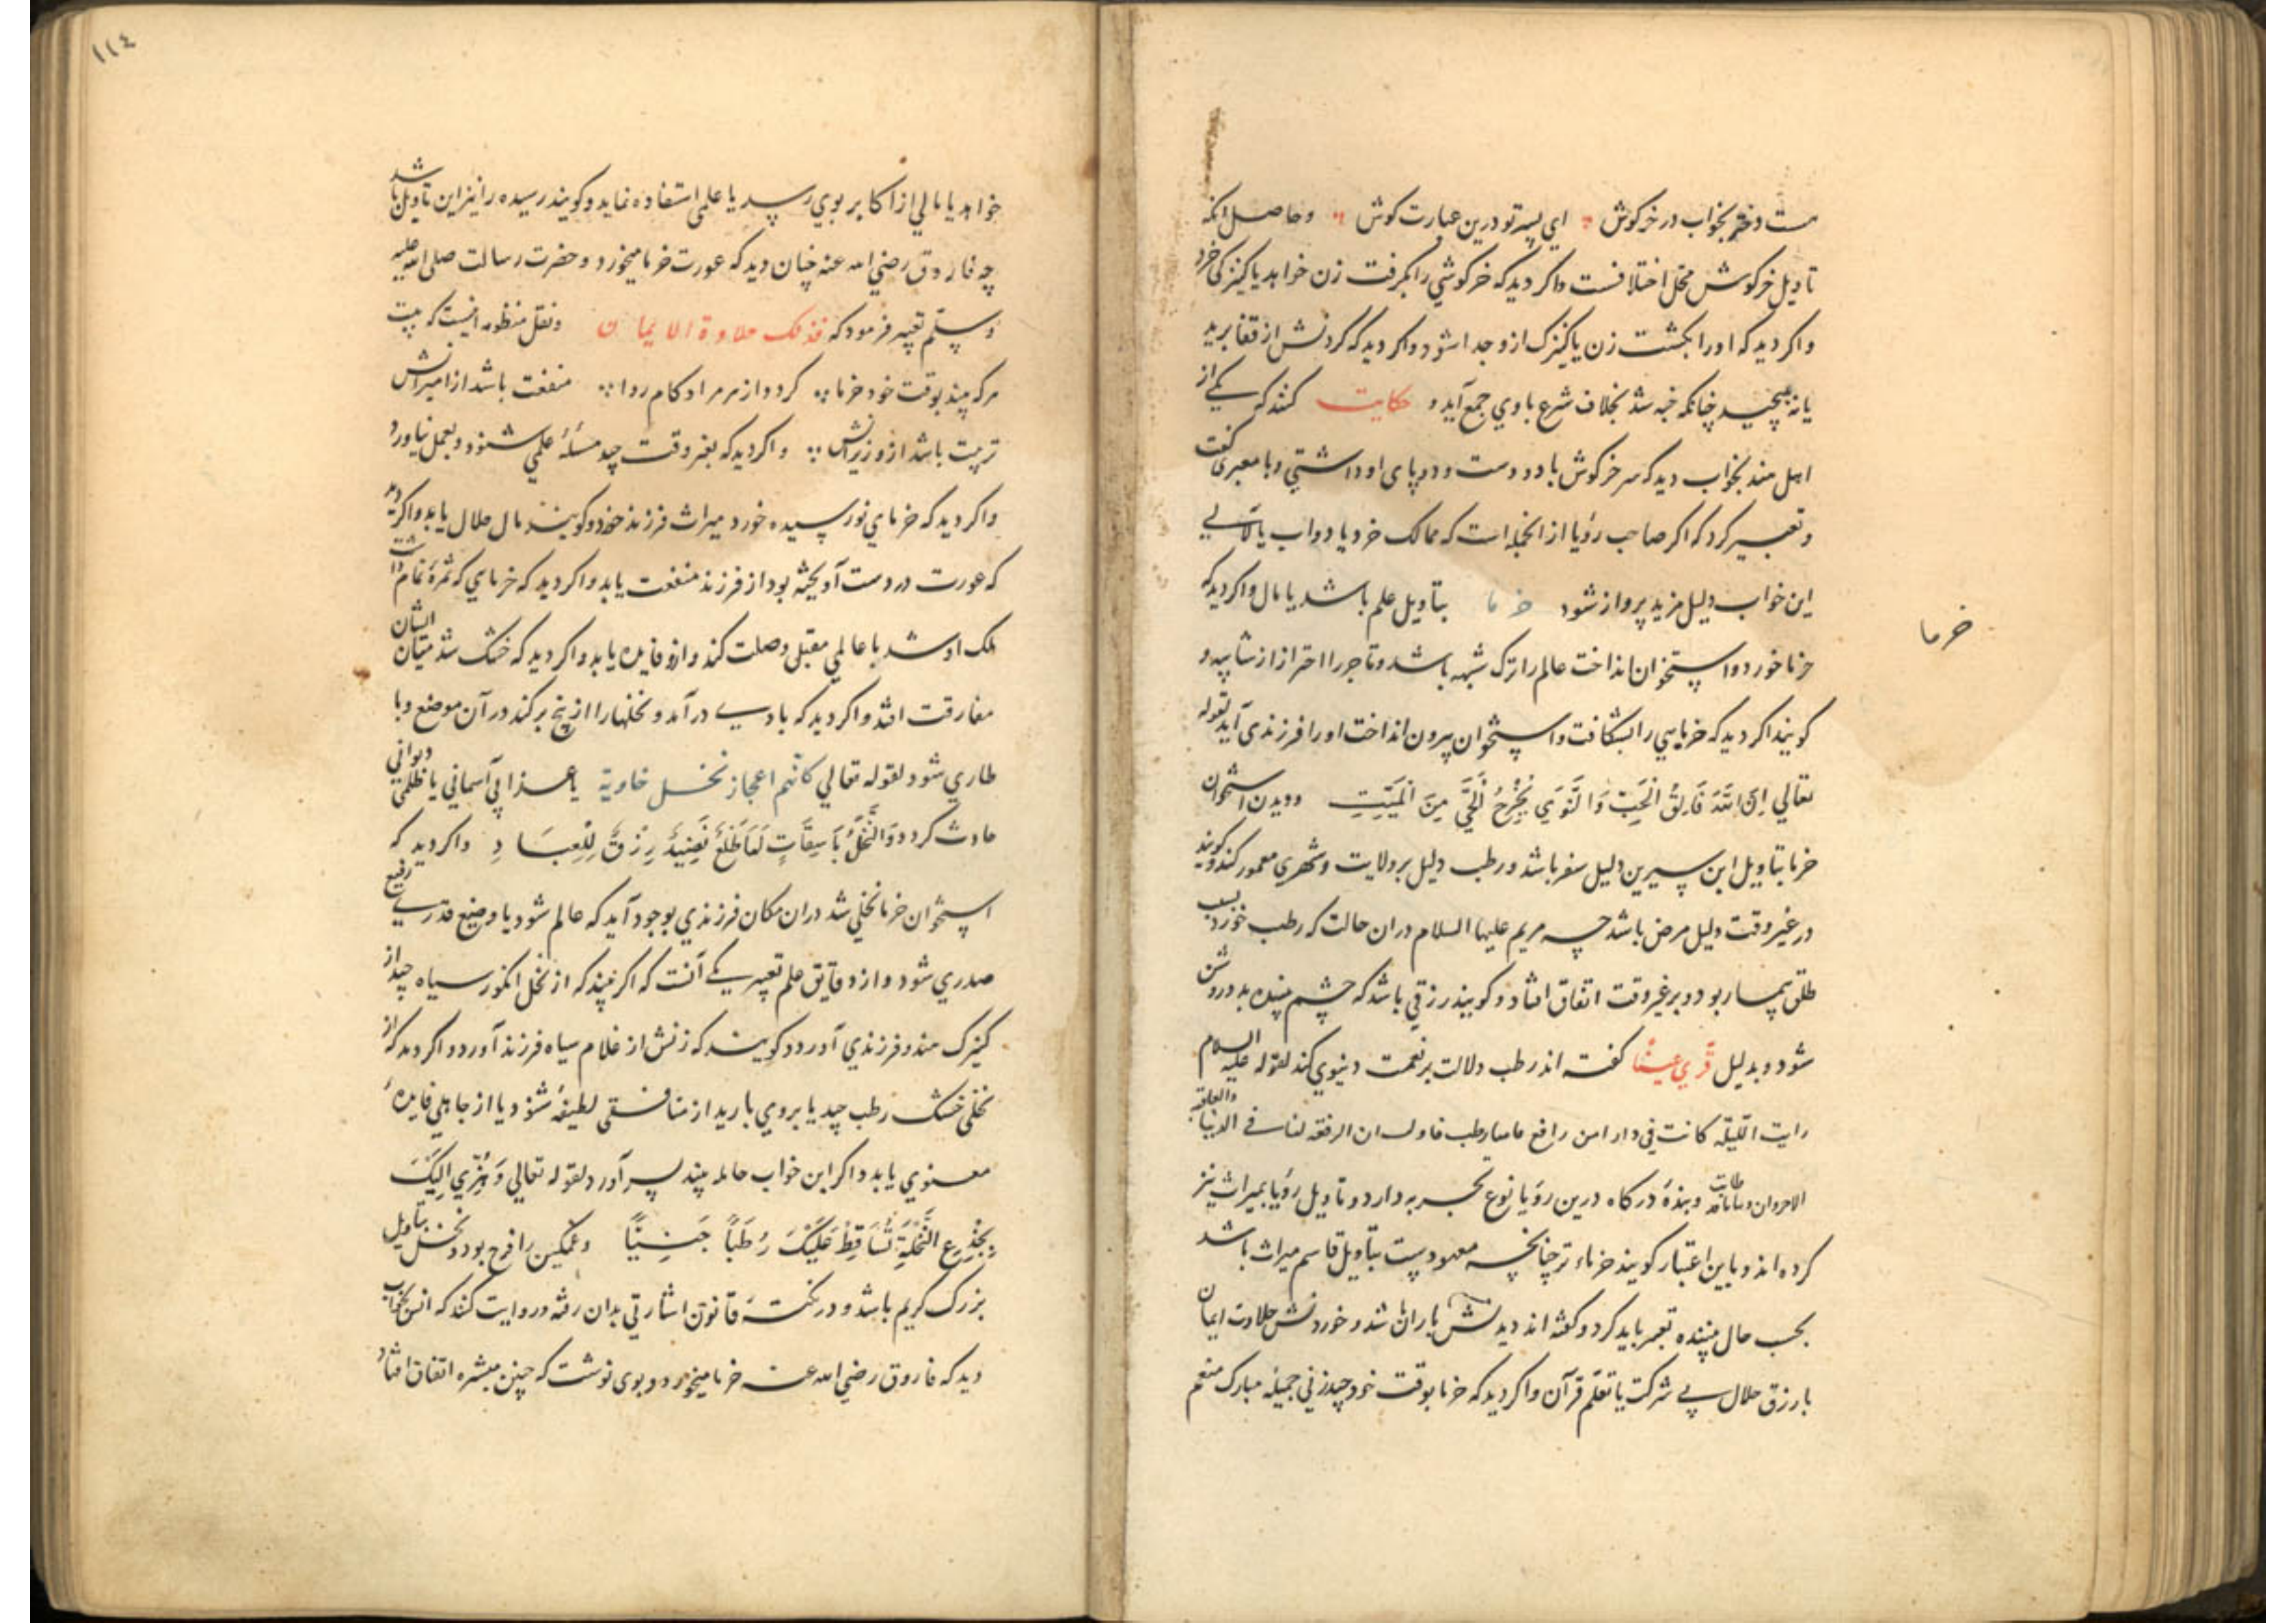 هست دختر بخواب در خرکوش ؞ ای پسر تو درین عبارت کوش ؞ وحاصل انکه
تاویل خرکوش محل اختلافست واکر دید که خرکوشی را بکرفت زن خواهد یا کنیزکی خرد
واکر دید که اورا بکشت زن یا کنیزک ازو جدا شود واکر دید که کردنش از قفا برید
یا نه پیچید چنانکه خبه شد بخلاف شرع باوی جمع آید و حکایت کنند که یکی از
اهل هند بخواب دید که سر خرکوش با دو دست و دو پای او داشتی وبا معبری کفت
وتعبیر کرد که اکر صاحب رؤیا از انجمله است که ممالک خرد یا دواب یا
این خواب دلیل مزید پرواز شود خرما بتاویل علم باشد یا مال واکر دید که
خرما
خرما خورد واستخوان انداخت عالم را ترک شبهه باشد وتاجر را احتراز از شایبه و
کویند اکر دید که خرمایی را بشکافت واستخوان بیرون انداخت اورا فرزندی آید لقوله
تعالی اِنَّ اللّٰهَ فَالِقُ الْحَبِّ وَالنَّوٰی یُخْرِجُ الْحَیَّ مِنَ الْمَیِّتِ ودیدن استخوان
خرما بتاویل ابن سیرین دلیل سفر باشد ورطب دلیل بر ولایت وشهری معمور کند وکویند
در غیر وقت دلیل مرض باشد چه مریم علیها السلام دران حالت که رطب خورد بسبب
طلق بیمار بود وبر غیر وقت اتفاق افتاد وکویند رزقی باشد که چشم بیننده بدو روشن
شود وبدلیل قَرّی عَینًا کفته اند رطب دلالت بر نعمت دنیوی کند لقوله علیه السلام
رایت اللیله کانت فی دار ابن رافع فاولت ان الرفعه لنا فی الدنیا والعاقبه
وبنده درکاه درین رؤیا نوع تجربه دارد وتاویل رؤیا بمیراث نیز
کرده اند وباین اعتبار کویند خرماء تر چنانچه معهودست بتاویل قاسم میراث باشد
بحسب حال بیننده تعبیر باید کرد وکفته اند دیدنش باران باشد وخوردنش حلاوت ایمان
یا رزق حلال بی شرکت یا تعلم قرآن واکر دید که خرما بوقت خود چید زنی جمیله مبارک منعم
١١٤
خواهد یا مالی از اکابر بوی رسد یا علمی استفاده نماید وکویند رسیده را نیز این تاویل باشد
چه فاروق رضی الله عنه چنان دید که عورت خرما میخورد وحضرت رسالت صلی الله علیه
وسلم تعبیر فرمود که فذلک حلاوة الایمان ونقل منظومه اینست که بیت
هرکه بیند بوقت خود خرما ؞ کردد از هر مراد کام روا ؞ منفعت باشد از امیرانش
تربیت باشد از وزیرانش ؞ واکر دید که بغیر وقت چید مسئلۀ علمی شنود وبعمل نیاورد
واکر دید که خرمای نو رسیده خورد میراث فرزند خورد وکویند مال حلال یابد واکر دید
که عورت در دست آویخته بود از فرزند منفعت یابد واکر دید که خرمای که ثمرۀ تمام داشت
ملک او شد با عالمی مقبل وصلت کند وازو فایده یابد واکر دید که خشک شد میان ایشان
مفارقت افتد واکر دید که بادی در آمد ونخلها را از بیخ برکند در آن موضع وبا
طاری شود لقوله تعالی کانهم اعجاز نخل خاویة یا عذابی آسمانی یا ظلمی دیوانی
حادث کردد وَالنَّخْلَ بَاسِقَاتٍ لَهَا طَلْعٌ نَضِیدٌ رِزْقًا لِلْعِبَادِ واکر دید که
استخوان خرما نخلی شد دران مکان فرزندی بوجود آید که عالم شود یا وضیع قدری رفیع
صدری شود واز دقایق علم تعبیر یکی آنست که اکر بیند که از نخل انکور سیاه چید از
کنیزک هندو فرزندی آورد وکویند که زنش از غلام سیاه فرزند آورد واکر دید که از
نخلی خشک رطب چید یا بروی بارید از منافقی لطیفۀ شنود یا از جاهلی فایدۀ
معنوی یابد واکر این خواب حامله بیند پسر آورد لقوله تعالی وَهُزِّی اِلَیْکِ
بِجِذْعِ النَّخْلَةِ تُسَاقِطْ عَلَیْکِ رُطَبًا جَنِیًّا وغمکین را فرح بود ونخل بتاویل
بزرک کریم باشد ودر نکتۀ قانون اشارتی بدان رفته وروایت کنند که انس بخواب
دید که فاروق رضی الله عنه خرما میخورد وبوی نوشت که چنین مبشره اتفاق افتاد